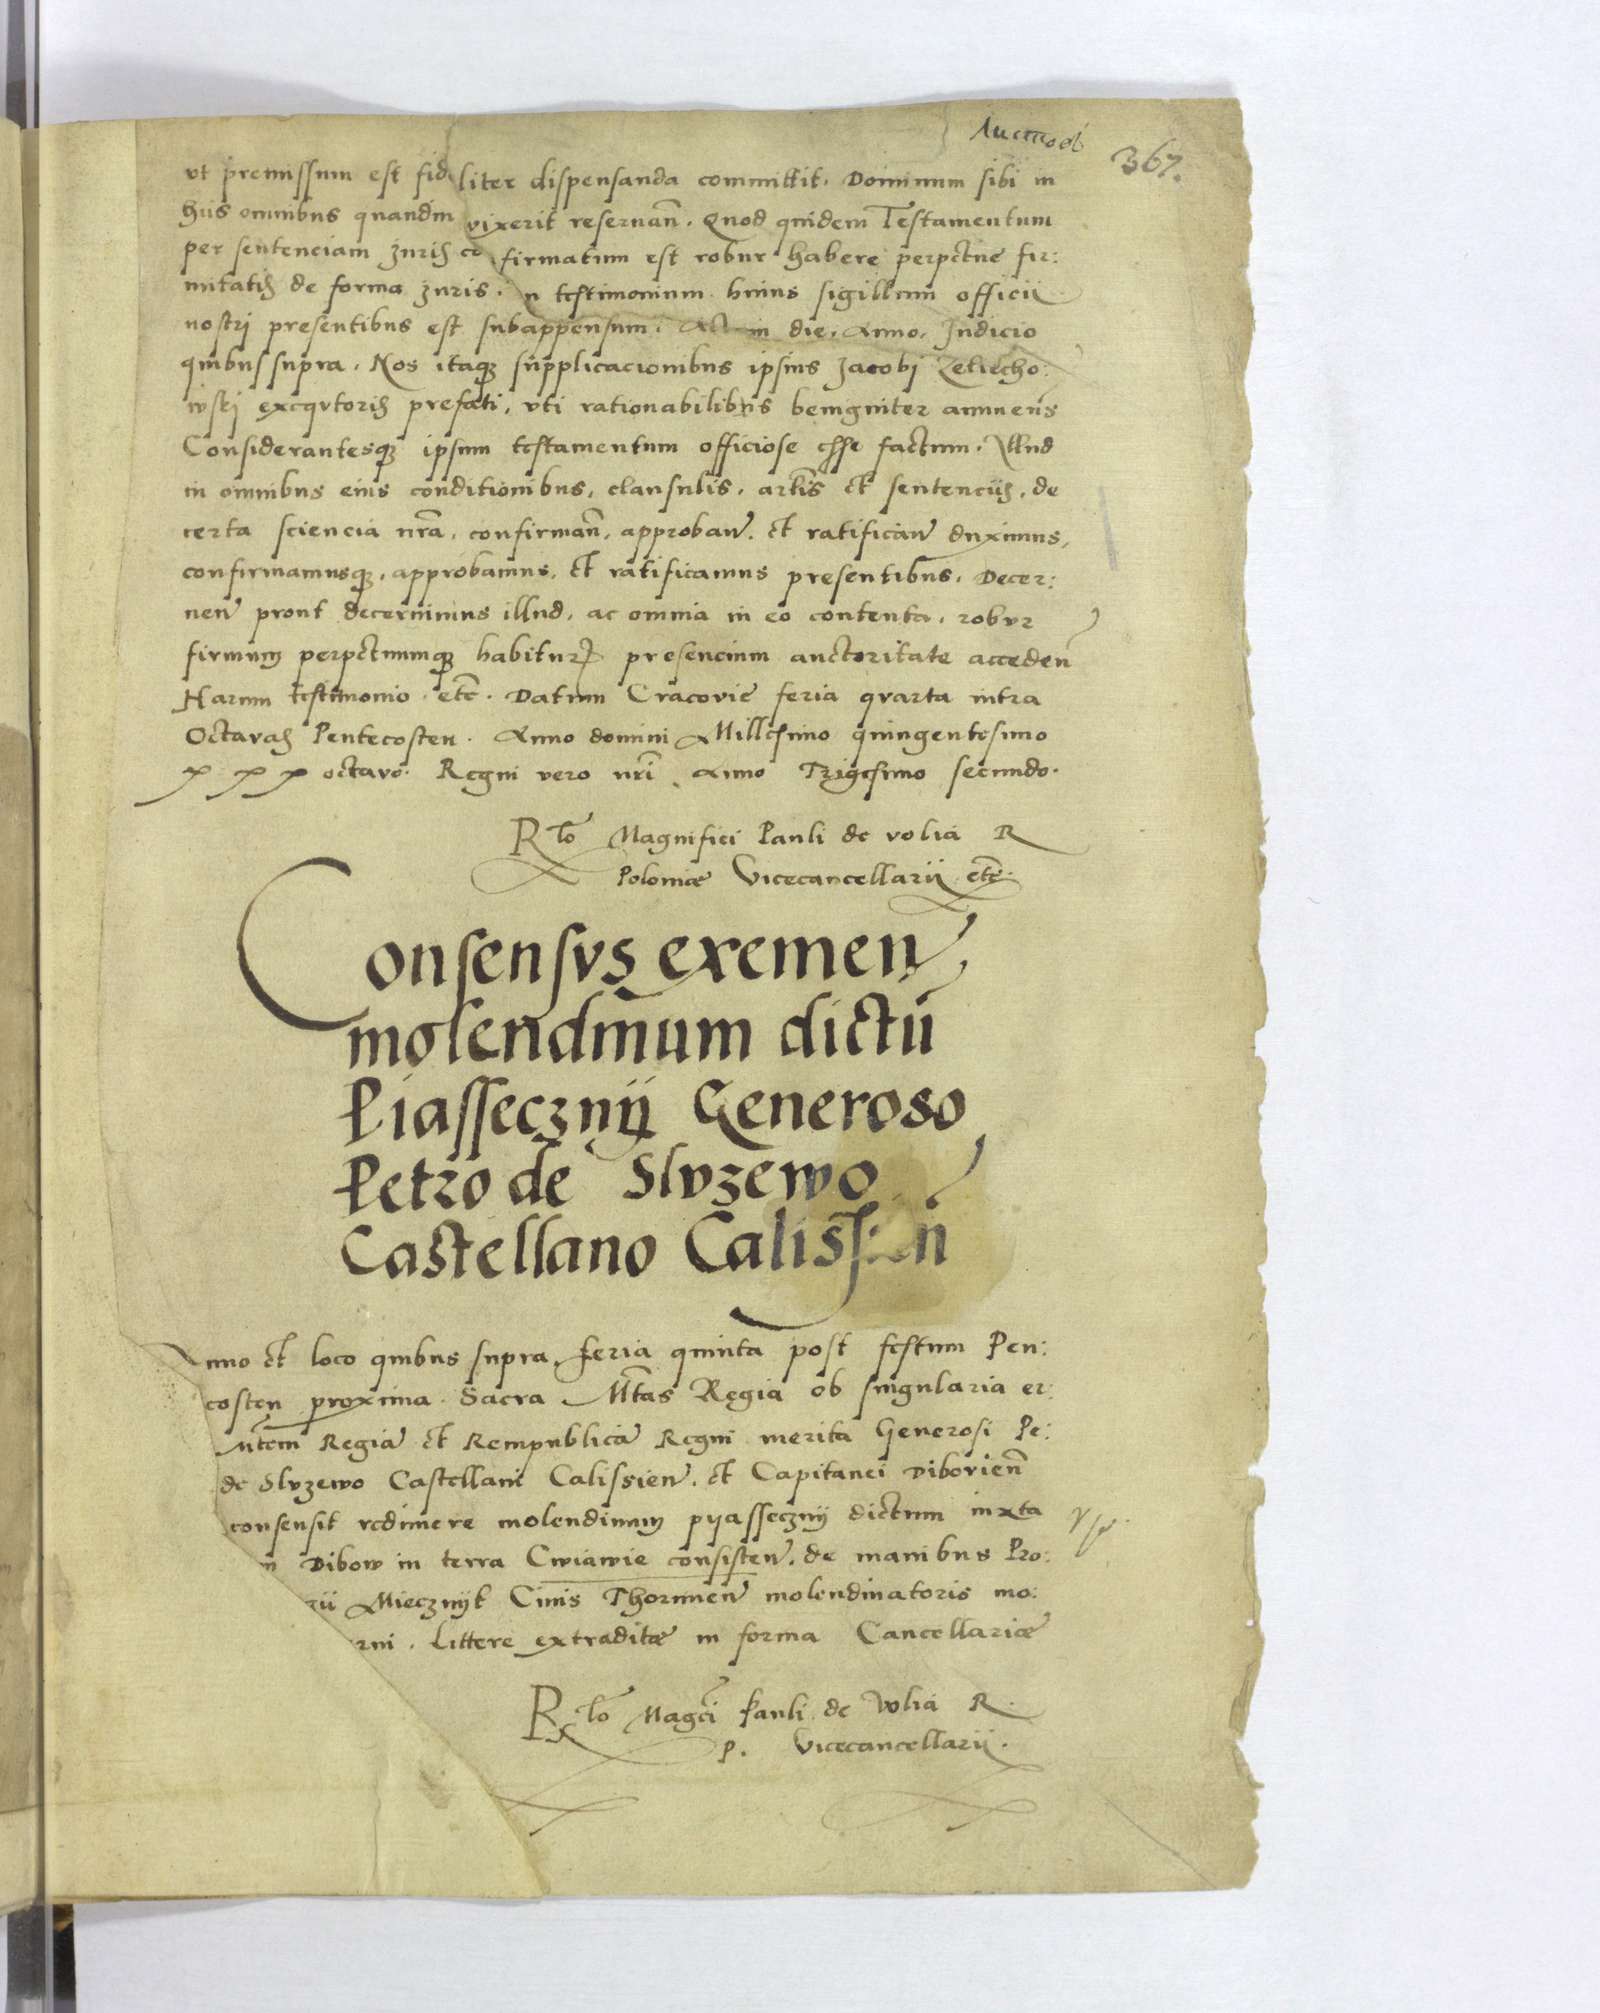 Листо͏в
367.
vt premissum est fideliter dispensanda committit. Dominium sibi in
hiis omnibus quandiu vixerit reseruan̄. Quod quidem Testamentum
per sentenciam Juris co firmatum est robur habere perpetue fir:
mitatis de forma Juris. n testimonium huius sigillum officii
nostri presentibus est subappensum. Act in die. Anno. Indicio
quibus supra. Nos itaq supplicacionibus ipsius Jacobi Zeliecho:
wskj exeqvtoris prefati, vti rationabilibus benigniter annuen̄s
Considerantesq ipsum testamentum officiose esse factum. Illud
in omnibus eius conditionibus, clausulis, artlis et sentenciis, de
certa sciencia nr̄a, confirman̄, approban̄. et ratifican̄ duximus,
confirmamusq, approbamus, et ratificamus presentibus. Decer:
nen̄ prout decernimus illud, ac omnia in eo contenta, robvr
firmum perpetuumq habitur presencium auctoritate acceden̄
Harum testimonio etc̄. Datum Cracovie feria qvarta intra
Octavas Pentecosten. Anno domini Millesimo quingentesimo
x x x octavo. Regni vero nr̄i Anno Trigesimo secundo.
Rlo Magnifici Pauli de volia R
Poloniæ Vicecancellarii etc̄.
Consensvs exemen̄
molendinum dictū
Piasseczny Generoso
Petro de Slvzewo
Castellano Calissien̄
Anno et loco quibus supra, feria quinta post festum Pen:
costen proxima. Sacra Mtas Regia ob singularia er:
Mtem Regia et Rempublica Regni merita Generosi Pe:
de Slvzewo Castellani Calissien̄. et Capitanei Diborien̄
consensit redimere molendinum pyasseczny dictum iuxta
m Dibow in terra Cwiawie consisten̄. de manibus Pro:
gii Miecznyk Ciuis Thorunien̄ molendinatoris mo:
rni. Littere extraditæ in forma Cancellariæ
Rlo Magci Pauli de Volia R.
P. Vicecancellarii.